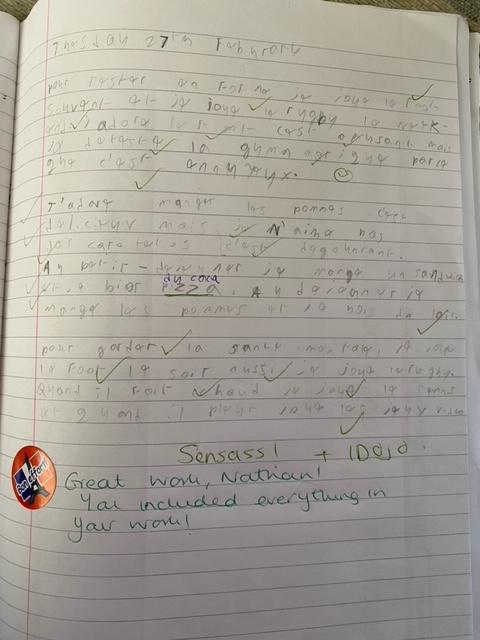 Tuesday 27th Februrary
pour rester en forme je joue le foot
souvent et je joue le rugby le week-
end J'adore le foot cest amusant mais
je deteste la gymnastique parce
que c'est annuyeux.
J'adore manger les pommes c'est
delicieux mais je N'aime pas
les carottes c'est degoutant.
An petit-dejeuner je mange un sandwich
du coca
et je bois pizza. An dejeuner je
mange les pommes et je bois du lait
pour garder la sante mentale, je joue
le foot le soir aussi je joue le rugby.
Quand il fait chaud je joue le tennis
et quand il pleut joue les jeux video
Sensass! + 1 Dojo.
Bon Effort!
Great work, Nathan!
You included everything in
your work!